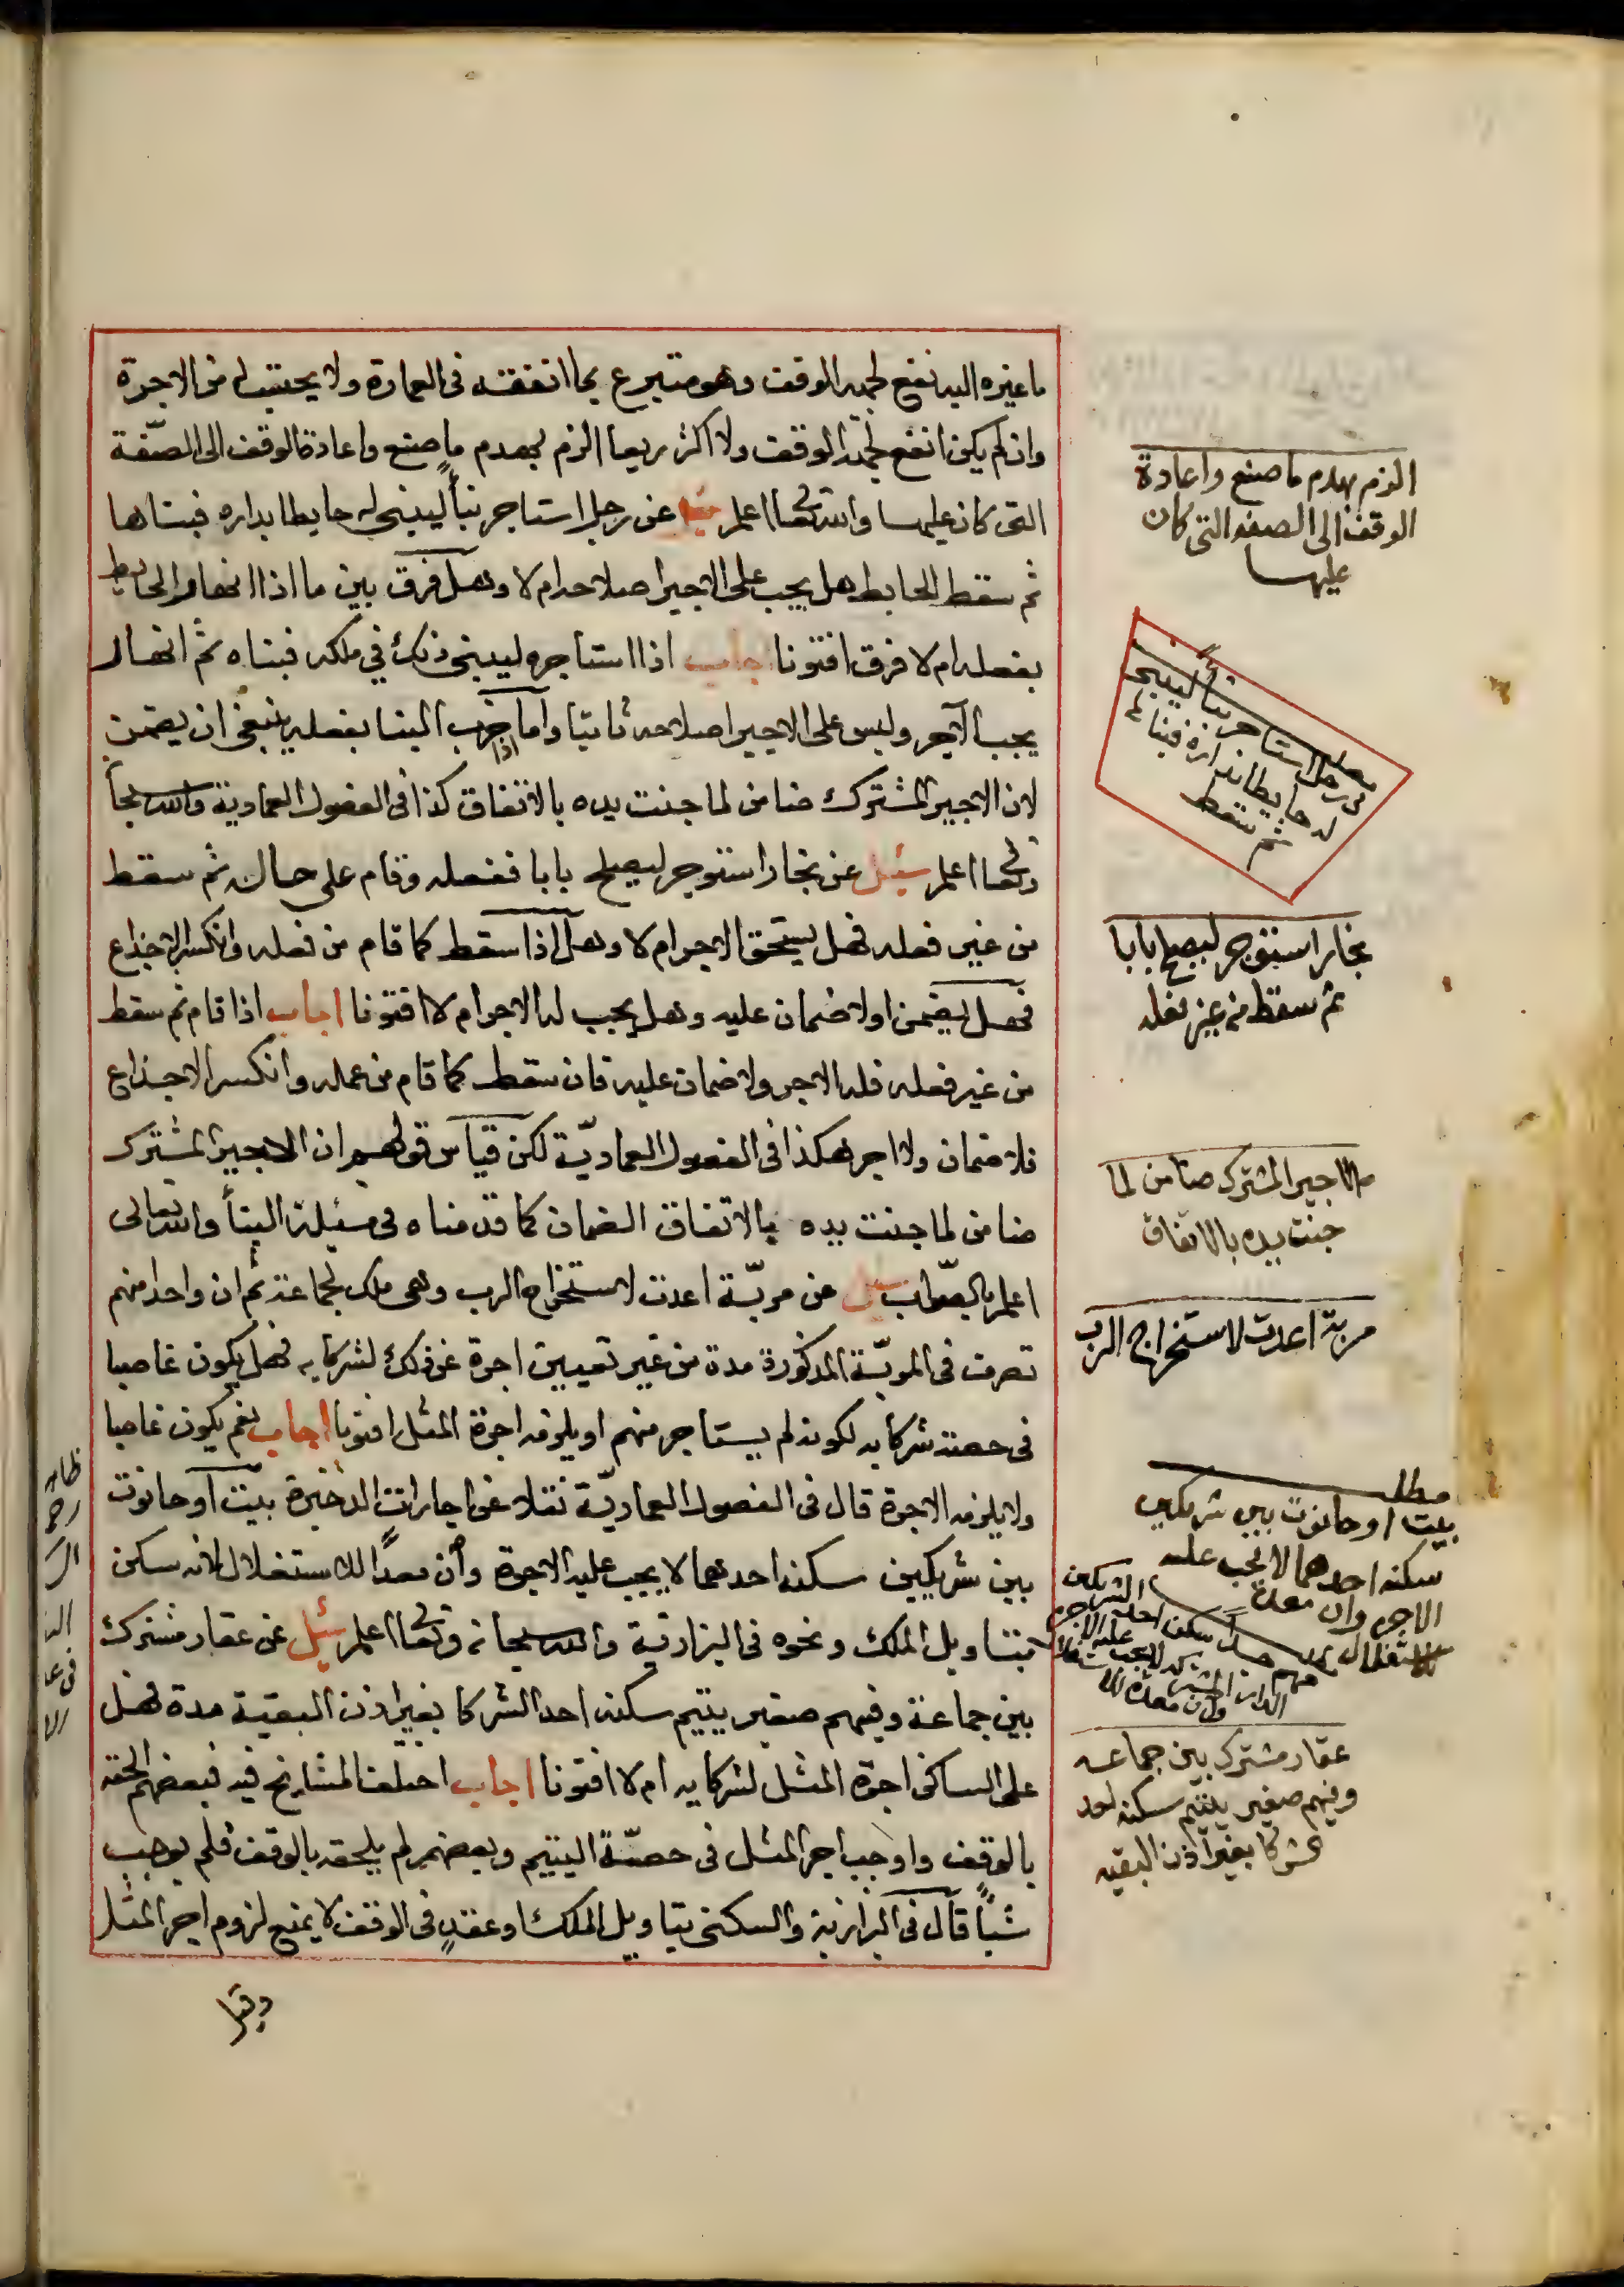 ما غيره اليه نفع لجهة الوقف وهو متبرع بما انفقته فى العمارة ولا يحتسب له من الاجرة
وان لم يكن انفع لجهة الوقف ولا اكثر ريعا الزم بهدم ما صنع واعادة الوقف الى الصفة
التى كان عليها والله تعالى اعلم سئل عن رجل استاجر بنأ ليبنى له حايطا بداره فبناها
ثم سقط الحايط هل يجب على الاجير اصلاحه ام لا وهل فرق بين ما اذا انهار الحايط
بفعله ام لا فرق افتونا اجاب اذا استاجره ليبنى ذلك في ملكه فبناه ثم انهار
يجب الاجر وليس على الاجير اصلاحه ثانيا واما اذا خرب البنا بفعله ينبغى ان يضمن
لان الاجير المشترك ضامن لما جنت يده بالاتفاق كذا فى الفصول العمادية والله سبحا
وتعالى اعلم سئل عن نجار استوجر ليصلح بابا ففعله وقام على حاله ثم سقط
من غير فعله فهل يستحق الاجر ام لا وهل اذا سقط كما قام من فعله وانكسر الاجذاع
فهل يضمن اولا ضمان عليه وهل يجب له الاجر ام لا افتونا اجاب اذا قام ثم سقط
من غير فعله فله الاجر ولا ضمان عليه فان سقط كما قام من عمله وانكسر الاجذاع
فلا ضمان ولا اجر هكذا فى الفصول العمادية لكن قياس قولهم ان الاجير المشترك
ضامن لما جنت يده بالاتفاق الضمان كما قدمناه فى مسئلة البنأ والله تعالى
اعلم بالصواب سئل عن مربّة اعدت لاستخراج الرب وهى ملك لجماعة ثم ان واحدا منهم
تصرف فى المربّة المذكورة مدة من غير تعيين اجرة عن ذلك لشركايه فهل يكون غاصبا
فى حصة شركايه لكونه لم يستاجر منهم او يلزمه اجرة المثل افتونا اجاب نعم يكون غاصبا
ولا يلزمه الاجرة قال فى الفصول العماديّة نقلا عن اجارات الذخيرة بيت او حانوت
بين شريكين سكنه احدهما لا يجب عليه الاجرة وان معدًا للاستغلال لانه سكن
بتاويل الملك ونحوه فى البزازية والله سبحانه وتعالى اعلم سئل عن عقار مشترك
بين جماعة وفيهم صغير يتيم سكنه احد الشركا بغير اذن البقية مدة فهل
على الساكن اجرة المثل لشركايه ام لا افتونا اجاب اختلف المشايخ فيه فبعضهم الحقه
بالوقف واوجب اجر المثل فى حصّة اليتيم وبعضهم لم يلحقه بالوقف فلم يوجب
شيأ قال فى البزازية والسكنى بتاويل الملك او عقدٍ فى الوقف لا يمنع لزوم اجر المثل
الزم بهدم ما صنع واعادة
الوقف الى الصفه التى كان
عليها
مطلب
رجل استاجر بنأ ليبنى
له حايطا بداره فبنا له
ثم سقط
نجار استوجر ليصلح بابا
ثم سقط من غير فعله
الاجير المشترك ضامن لما
جنت يده بالاتفاق
مربة اعدت لاستخراج الرب
مطلب
بيت او حانوت بين شريكين
سكنه احدهما لا يجب عليه
الاجره وان معدة
للاستغلال
عقار مشترك بين جماعه
وفيهم صغير يتيم سكنه احد
الشركا بغير اذن البقيه